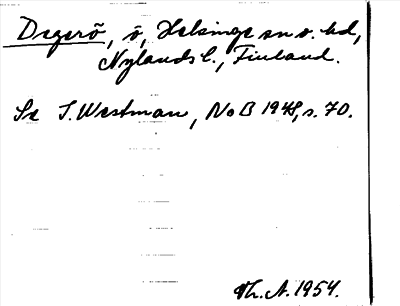 Degerö, ö, Helsinge sn o. hd,
Nylands l., Finland.
Se I. Westman, NoB 1948, s. 70.
Th. A. 1954.